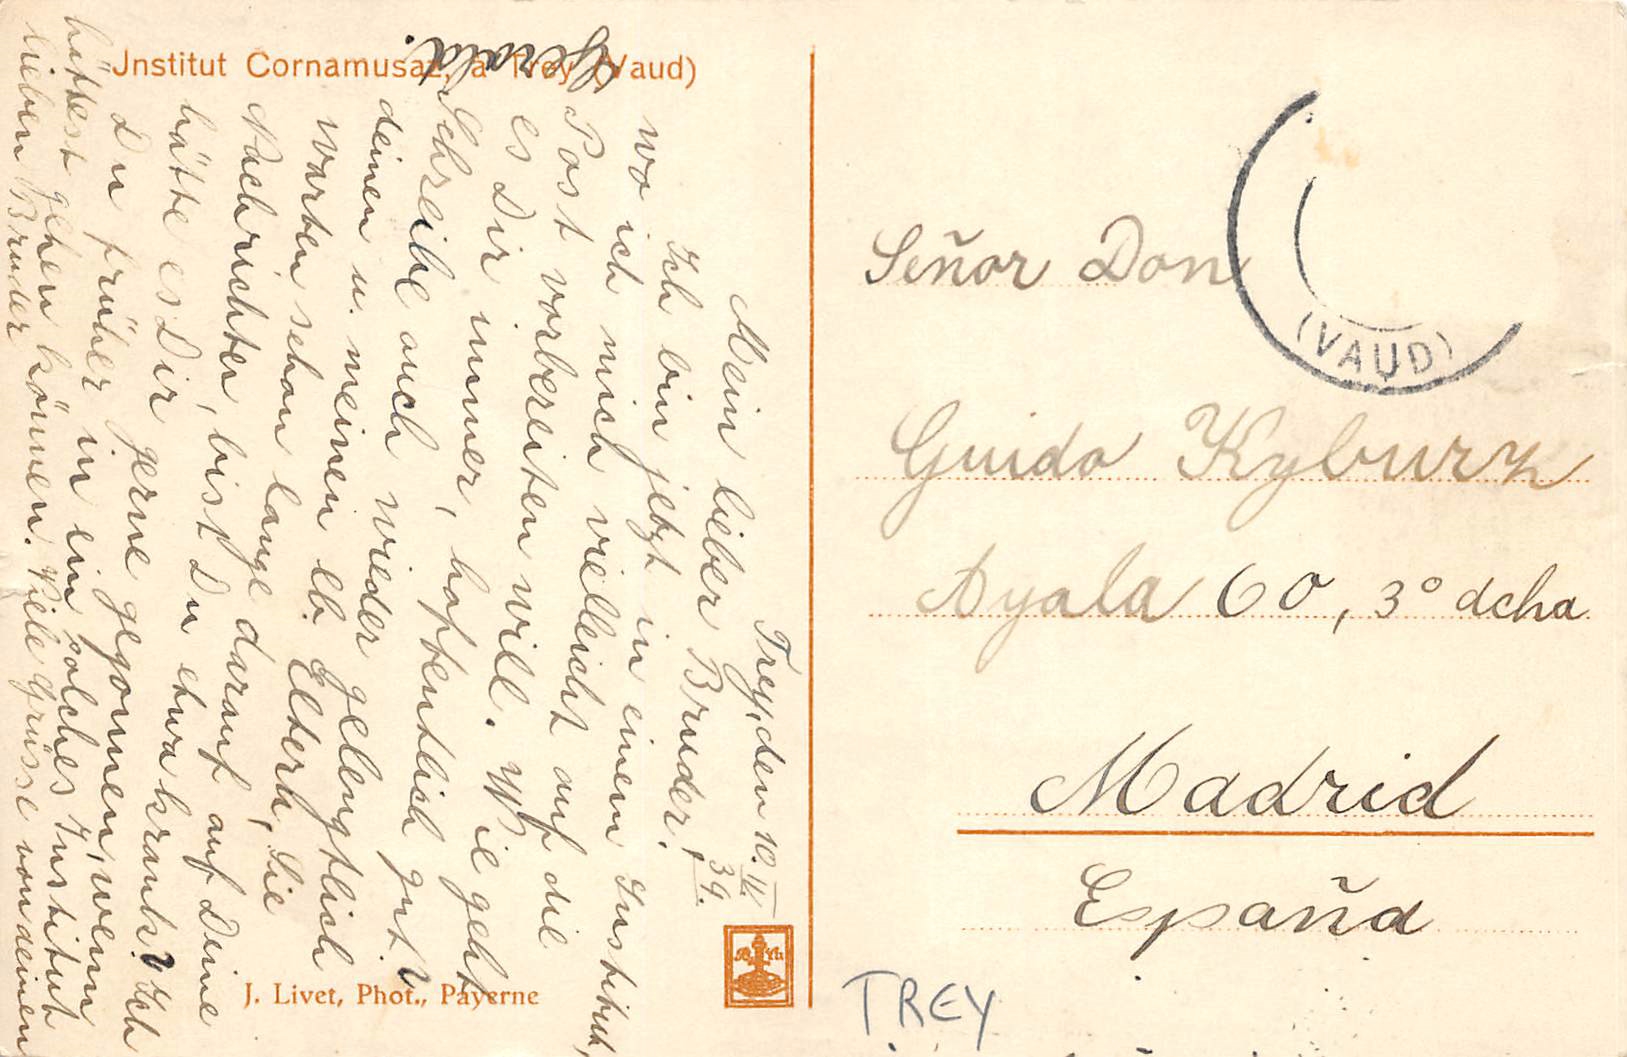 Jnstitut Cornamusaz, à Trey (Vaud)
Trey, den 10. II. 39.
Mein lieber Bruder!
Ich bin jetzt in einem Institut,
wo ich mich vielleicht auf die
Post vorbereiten will. Wie geht
es Dir immer, hoffentlich gut?
Schreibe auch wieder gelengtlich
deinen u. meinen lb. Eltern, Sie
warten schon lange darauf auf Deine
Nachrichten, bist Du etwa krank? Ich
hätte es Dir gerne gegonnen, wenn
Du früher in ein solches Institut
hättest gehen können. Viele Grüsse von deinem
lieben Bruder
Gerold.
J. Livet, Phot., Payerne
(VAUD)
Señor Don
Guido Kyburz
Ayala 60, 3º dcha
Madrid
España
TREY